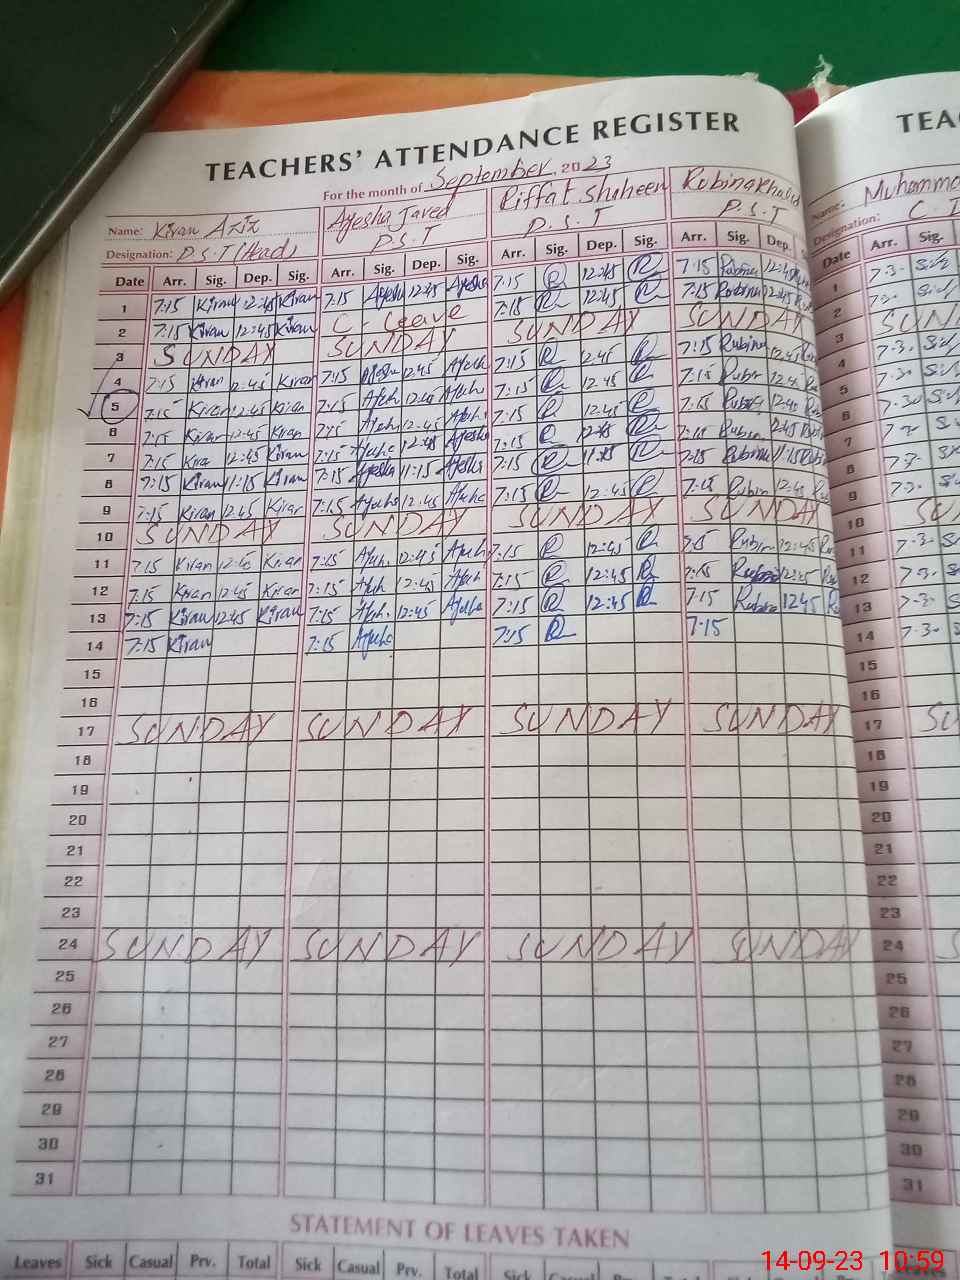 TEACHERS' ATTENDANCE REGISTER
For the month of September, 2023
Name: Kiran Aziz Ayesha Javed Riffat Shaheen Robina Khalid
Designation: P.S.T (Head) P.S.T P.S.T P.S.T
Date Arr. Sig. Dep. Sig. Arr. Sig. Dep. Sig. Arr. Sig. Dep. Sig. Arr. Sig. Dep.
1 7:15 Kiran 12:45 Kiran 7:15 Ayesha 12:45 Ayesha 7:15 12:45 7:15 Rubina 12:45
2 7:15 Kiran 12:45 Kiran C - Leave 7:15 12:45 7:15 Rubina 12:45
3 SUNDAY SUNDAY SUNDAY SUNDAY
4 7:15 Kiran 12:45 Kiran 7:15 Ayesha 12:45 7:15 12:45 7:15 Rubina 12:45
5 7:15 Kiran 12:45 Kiran 7:15 12:45 7:15 12:45 7:15 Rubin 12:45
6 7:15 Kiran 12:45 Kiran 7:15 12:45 7:15 12:45 7:15 12:45
7 7:15 Kira 12:45 Kiran 7:15 12:45 Ayesha 7:15 12:45 7:15 Rubin 12:45
8 7:15 Kiran 11:15 Kiran 7:15 Ayesha 11:15 Ayesha 7:15 11:15 7:15 Rubina 11:15
9 7:15 Kiran 12:45 Kiran 7:15 12:45 7:15 12:45 7:15 Rubin 12:45
10 SUNDAY SUNDAY SUNDAY SUNDAY
11 7:15 Kiran 12:45 Kiran 7:15 12:45 7:15 12:45 7:15 Rubin 12:45
12 7:15 Kiran 12:45 Kiran 7:15 12:45 7:15 12:45 7:15 12:45
13 7:15 Kiran 12:45 Kiran 7:15 12:45 7:15 12:45 7:15 Rubina 12:45
14 7:15 Kiran 7:15 7:15 7:15
15
16
17 SUNDAY SUNDAY SUNDAY SUNDAY
18
19
20
21
22
23
24 SUNDAY SUNDAY SUNDAY SUNDAY
25
26
27
28
29
30
31
STATEMENT OF LEAVES TAKEN
Leaves Sick Casual Prv. Total Sick Casual Prv. Total Sick Casual Prv.
TEAC
Name: Muhamma
Designation: C.
Date Arr. Sig.
1 7:3
2
3 SUN
4 7:3
5 7:30
6 7:30
7
8 7:3
9 7:3
10 SU
11 7:3
12 7:3
13 7:3
14 7:3
15
16
17 SU
18
19
20
21
22
23
24 S
25
26
27
28
29
30
31
14-09-23 10:59